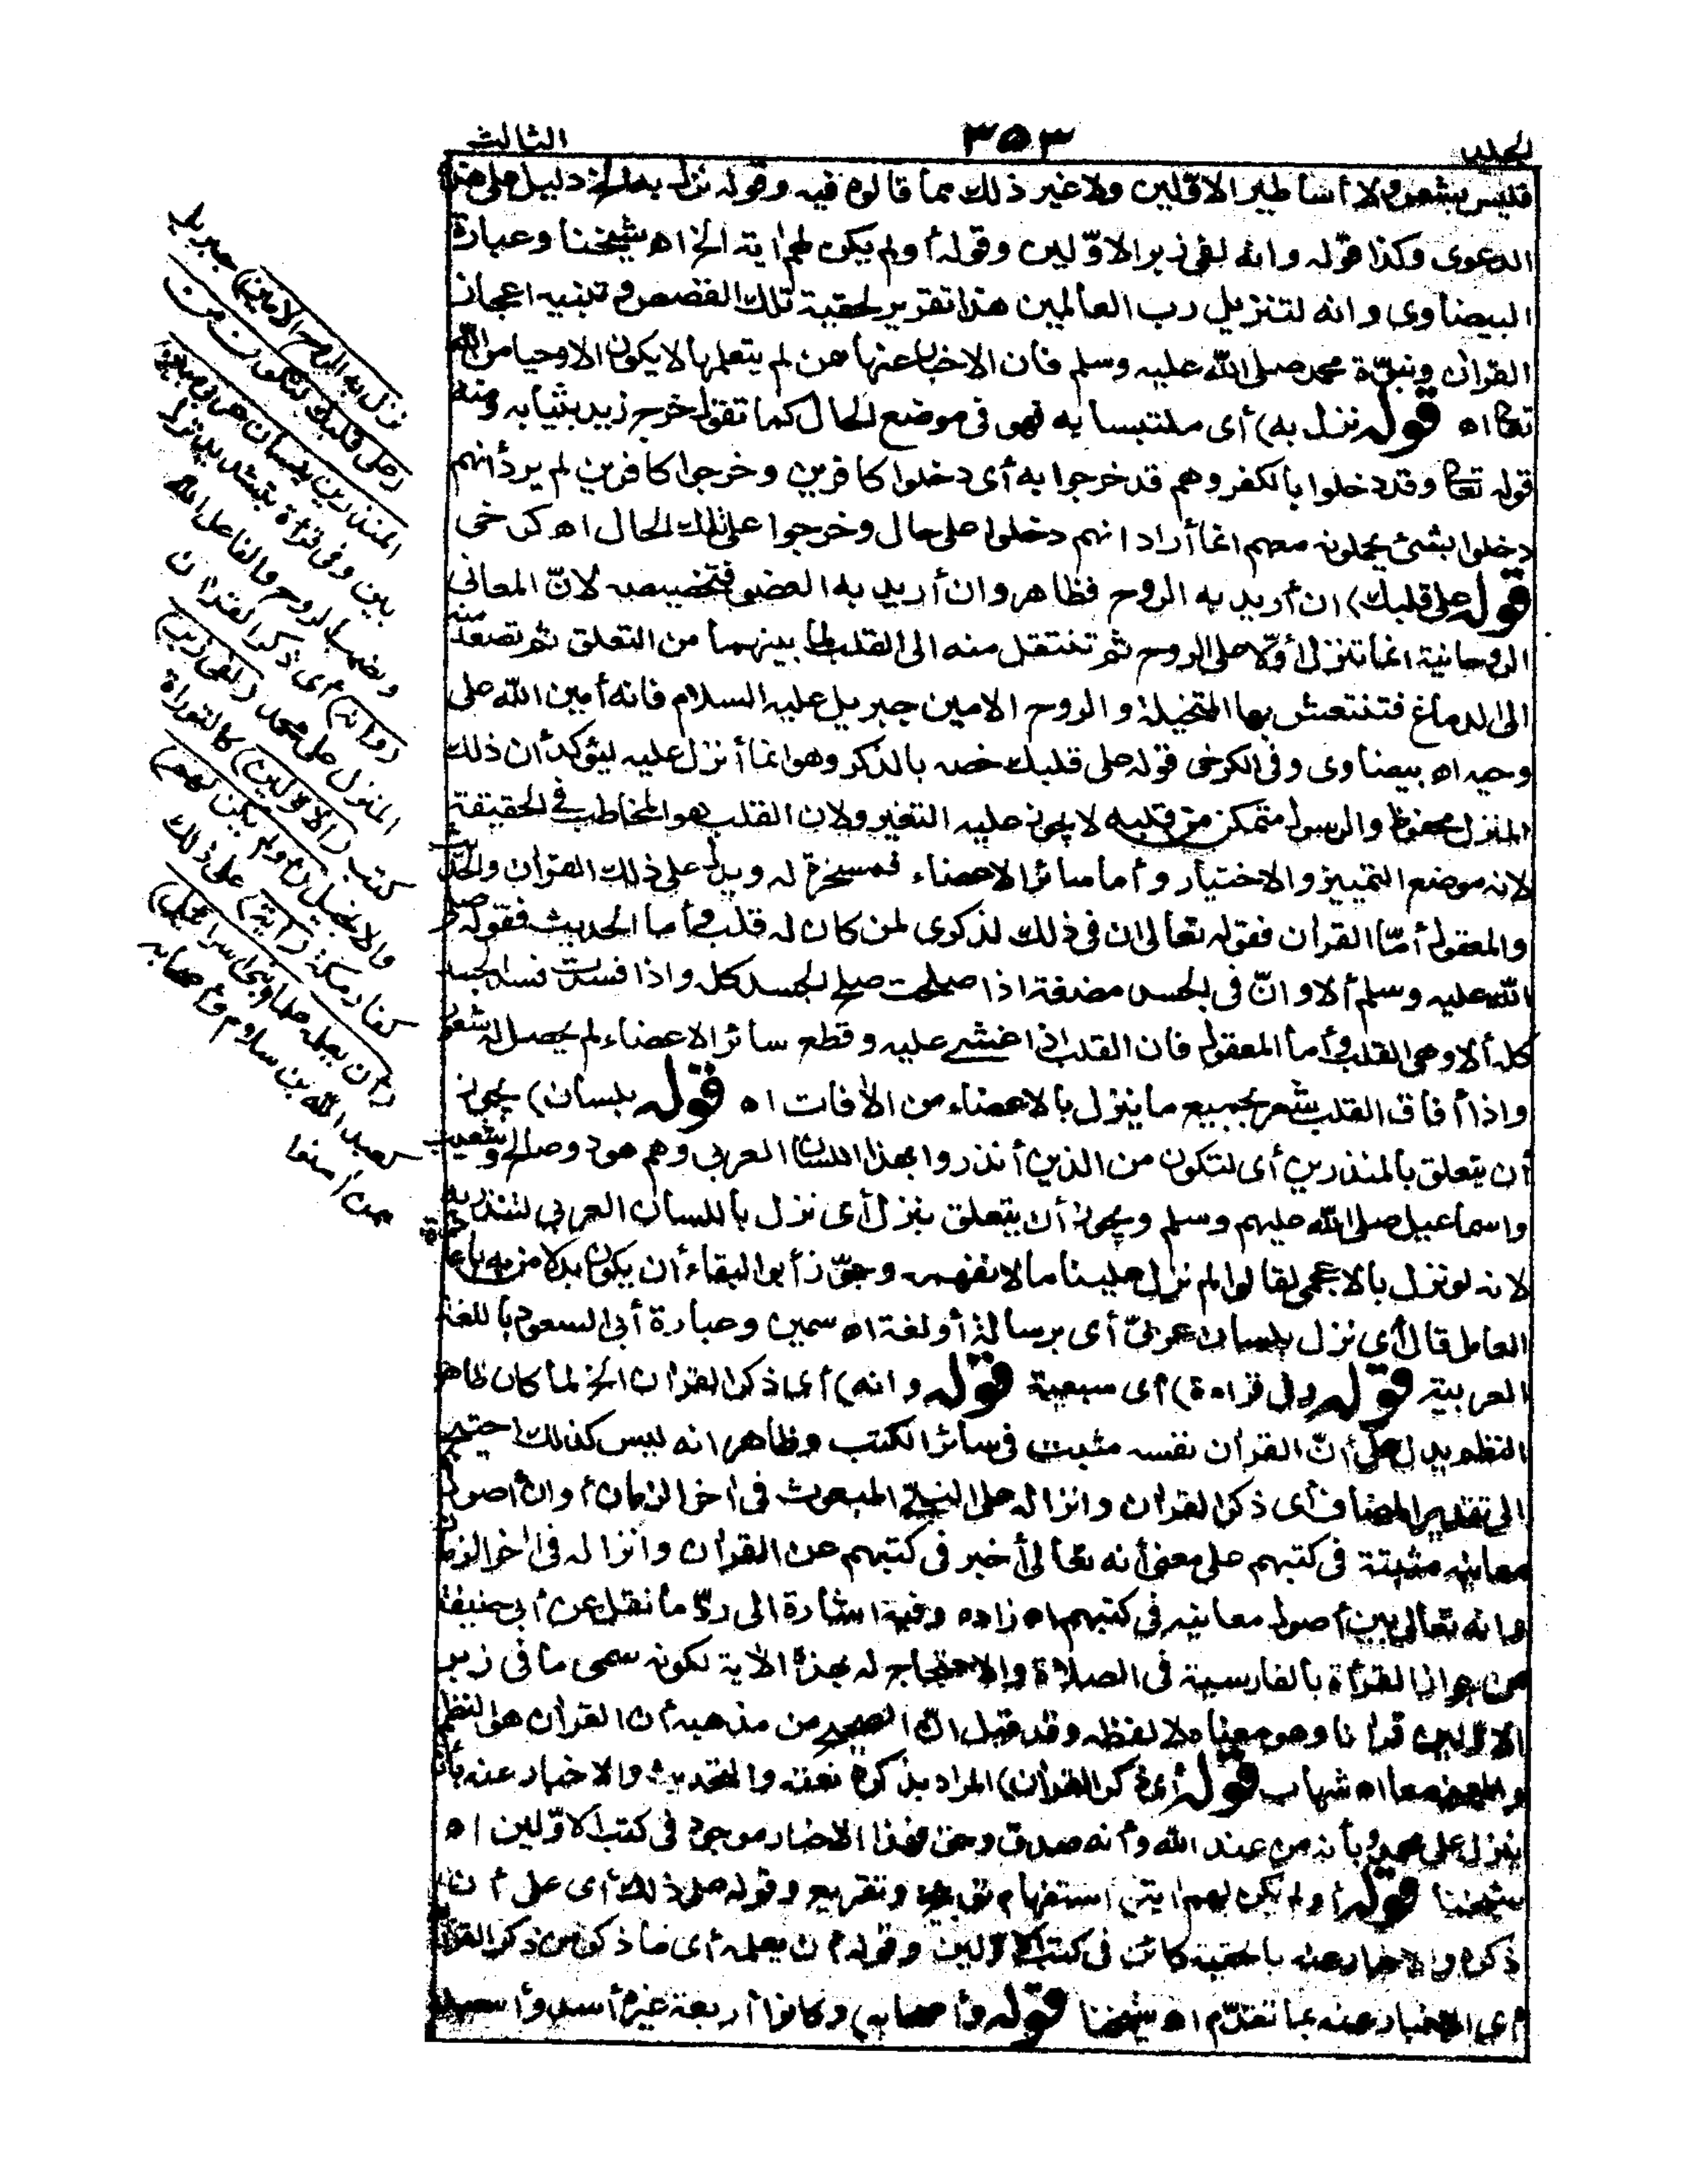 الجلد
٣٥٣
الثالث
فليس بشعر ولا أساطير الاوّلين ولا غير ذلك مما قالوه فيه وقوله نزل به الخ دليل على هذه
الدعوى وكذا قوله وانه لفى زبر الاوّلين وقوله أولم يكن لهم اية الخ اه شيخنا وعبارة
البيضاوى وانه لتنزيل رب العالمين هذا تقرير لحقية تلك القصص وتنبيه اعجاز
القران ونبوّة محمد صلى الله عليه وسلم فان الاخبار عنها ممن لم يتعلمها لا يكون الا وحيا من الله
تعا اه قوله نزل به) أى ملتبسا به فهو فى موضع الحال كما تقول خرج زيد بثيابه ومنه
قوله تعا وقد دخلوا بالكفر وهم قد خرجوا به أى دخلوا كافرين وخرجوا كافرين لم يرد أنهم
دخلوا بشئ يحملونه معهم انما أراد انهم دخلوا على حال وخرجوا على تلك الحال اه كرخى
قوله على قلبك) ان أريد به الروح فظاهر وان أريد به العضو فتخصيصه لانّ المعانى
الروحانية انما تنزل أوّلا على الروح ثم تنتقل منه الى القلب لما بينهما من التعلق ثم تصعد منه
الى الدماغ فتنتعش بها المتخيلة والروح الامين جبريل عليه السلام فانه أمين الله على
وحيه اه بيضاوى وفى الكرخى قوله على قلبك خصه بالذكر وهو انما أنزل عليه ليؤكد أن ذلك
المنزل محفوظ والرسول متمكن من قلبه لا يجوز عليه التغير ولان القلب هو المخاطب فى الحقيقة
لانه موضع التمييز والاختيار وأما سائر الاعضاء فمسخرة له ويدل على ذلك القران والحديث
والمعقول أمّا القران فقوله تعالى ان فى ذلك لذكرى لمن كان له قلب وأما الحديث فقوله صلى
الله عليه وسلم ألا وانّ فى الجسد مضغة اذا صلحت صلح الجسد كله واذا فسدت فسد الجسد
كله ألا وهى القلب وأما المعقول فان القلب اذا غشى عليه وقطع سائر الاعضاء لم يحصل له شعور
واذا أفاق القلب شعر بجميع ما ينزل بالاعضاء من الافات اه قوله بلسان) يجوز
أن يتعلق بالمنذرين أى لتكون من الذين أنذروا بهذا اللسان العربى وهم هود وصالح وشعيب
واسماعيل صلى الله عليهم وسلم ويجوز أن يتعلق بنزل أى نزل باللسان العربى لتنذر به
لانه لو نزل بالاعجمى لقالوا لم نزل علينا ما لا نفهمه وجوّز أبو البقاء أن يكون بدلا من به باعادة
العامل قال أى نزل بلسان عربىّ أى برسالة أو لغة اه سمين وعبارة أبى السعود باللغة
العربية قوله وفى قراءة) أى سبعية قوله وانه) أى ذكر القران الخ لما كان ظاهر
النظم يدل على أنّ القران نفسه مثبت فى سائر الكتب وظاهر انه ليس كذلك احتيج
الى تقدير المضاف أى ذكر القران وانزاله على النبى المبعوث فى اخر الزمان أو ان أصول
معانيه مثبتة فى كتبهم على معنى أنه تعالى أخبر فى كتبهم عن القران وانزاله فى اخر الزمان
وانه تعالى بين أصول معانيه فى كتبهم اه زاده وفيه اشارة الى ردّ ما نقل عن أبى حنيفة
من جواز القرأة بالفارسية فى الصلاة والاحتجاج له بهذه الاية لكونه سمى ما فى زبر
الاوّلين قرانا وهو معناه لا لفظه وقد قيل انّ الصحيح من مذهبه أن القران هو النظم
والمعنى معا اه شهاب قوله أى ذكر القران) المراد بذكره نعته والتحديث والاخبار عنه بأنه
ينزل على محمد وبأنه من عند الله وأنه صدق وحق فهذا الاخبار موجود فى كتب الاوّلين اه
شيخنا قوله أولم يكن لهم اية) استفهام توبيخ وتقريع وقوله على ذلك أى على أن
ذكره والاخبار عنه بالحقية كائن فى كتب الاوّلين وقوله أن يعلمه أى ما ذكر من ذكر القران
أى الاخبار عنه بما تقدّم اه شيخنا قوله وأصحابه) وكانوا أربعة غيره أسد وأسيد
نزل به الروح الامين) جبريل
(على قلبك لتكون من
المنذرين بلسان عربى مبين)
بين وفى قرأة بتشديد نزل
ونصب الروح والفاعل الله
(وانه) أى ذكر القران
المنزل على محمد (لفى زبر)
كتب (الاوّلين) كالتوراة
والانجيل (أولم يكن لهم)
كفار مكة (اية) على ذلك
(أن يعلمه علماء بنى اسرائيل)
كعبد الله بن سلام وأصحابه
ممن أمنوا